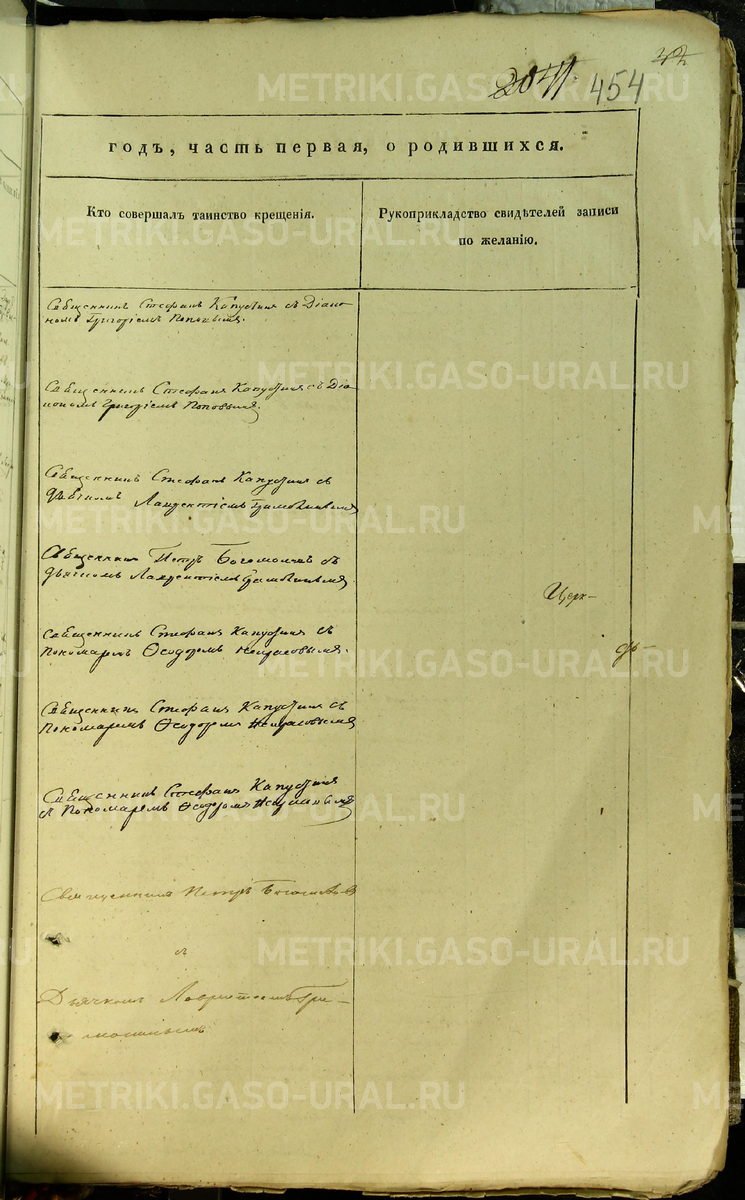 42
2041. 454
годъ, часть первая, о родившихся.
Кто совершалъ таинство крещенія.
Рукоприкладство свидѣтелей записи
по желанію.
Священникъ Стефанъ Капустинъ съ Діако-
номъ Григоріемъ Поповымъ.
Священникъ Стефанъ Капустинъ съ Діа-
кономъ Григоріемъ Поповымъ.
Священникъ Стефанъ Капустинъ съ
Дьячкомъ Лаврентіемъ
Священникъ Петръ Богомоловъ съ
дьячкомъ Лаврентіемъ
Церк-
Священникъ Стефанъ Капустинъ съ
Пономаремъ Ѳеодоромъ Некрасовымъ.
Священникъ Стефанъ Капустинъ съ
Пономаремъ Ѳеодоромъ Некрасовымъ
Священникъ Стефанъ Капустинъ
съ Пономаремъ Ѳеодоромъ Некрасовымъ
Священникъ Петръ
съ
Дьячкомъ
METRIKI.GASO-URAL.RU